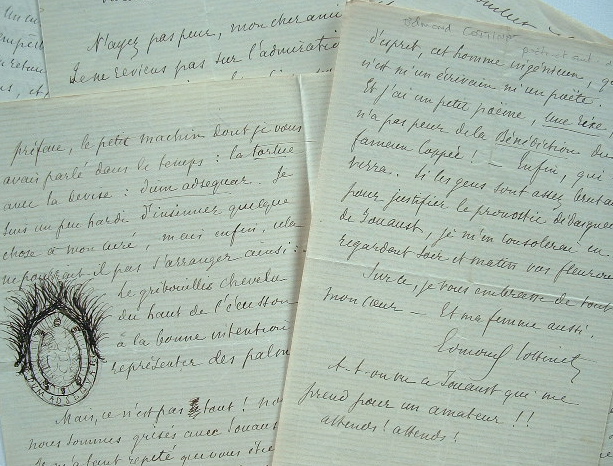 N'ayez pas peur, mon cher ami
Je ne reviens pas sur l'admiratio
préface, le petit machin dont je vous
avais parlé dans le temps : la tortue
avec la devise : dum adsequar. Je
suis un peu hardi d'insinuer quelque
chose à mon aîné, mais enfin, cela
ne pourrait il pas s'arranger ainsi :
Le gribouillis chevelu
du haut de l'écusson
à la bonne intention
représenter des palm
Mais, ce n'est pas tout ! no
nous sommes grisés avec Jouaust
m'a tant répété que vous êtes
Edmond Cottinet
d'apret, cet homme ingénieux, qu
n'est ni un écrivain ni un poète.
Et j'ai un petit poème, une rixe
n'a pas peur de la Bénédiction du
fameux Coppée ! Enfin, qui
verra. Si les gens sont assez brutau
pour justifier le pronostic dédaigneu
de Jouaust, je m'en consolerai en
regardant soir et matin vos fleurons
Sur ce, je vous embrasse de tout
mon cœur — Et ma femme aussi.
Edmond Cottinet
A-t-on vu ce Jouaust qui me
prend pour un amateur !!
attends ! attends !